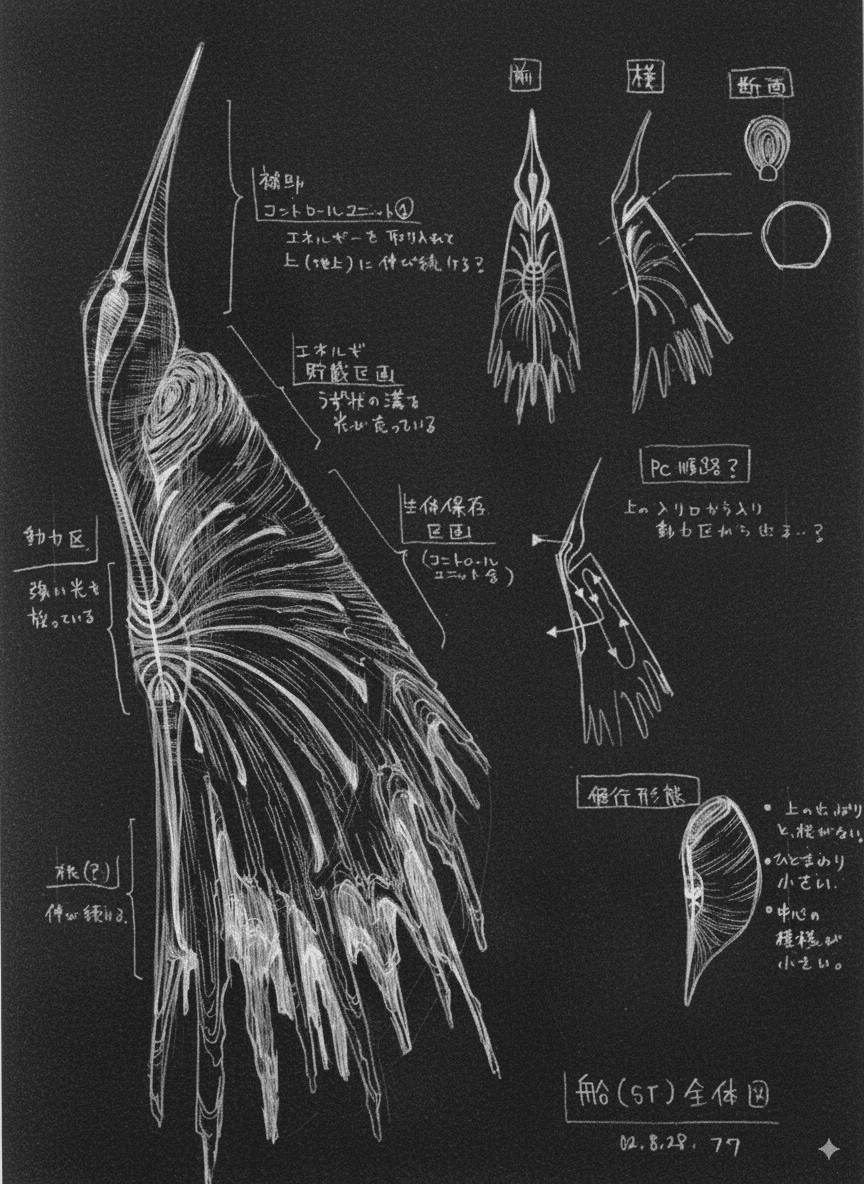 前
横
断面
補助
コントロールユニット①
エネルギーを取り入れて
上(地上)に伸び続ける?
エネルギ
貯蔵区画
うず状の溝を
光が走っている
生体保存
区画
(コントロール
ユニット含)
動力区
強い光を
放っている
根(?)
伸び続ける。
PC順路?
上の入り口から入り
動力区から出る..?
飛行形態
• 上の出っぱり
と、根がない。
• ひとまわり
小さい.
• 中心の
模様が
小さい。
船(ST)全体図
02.8.28. 77